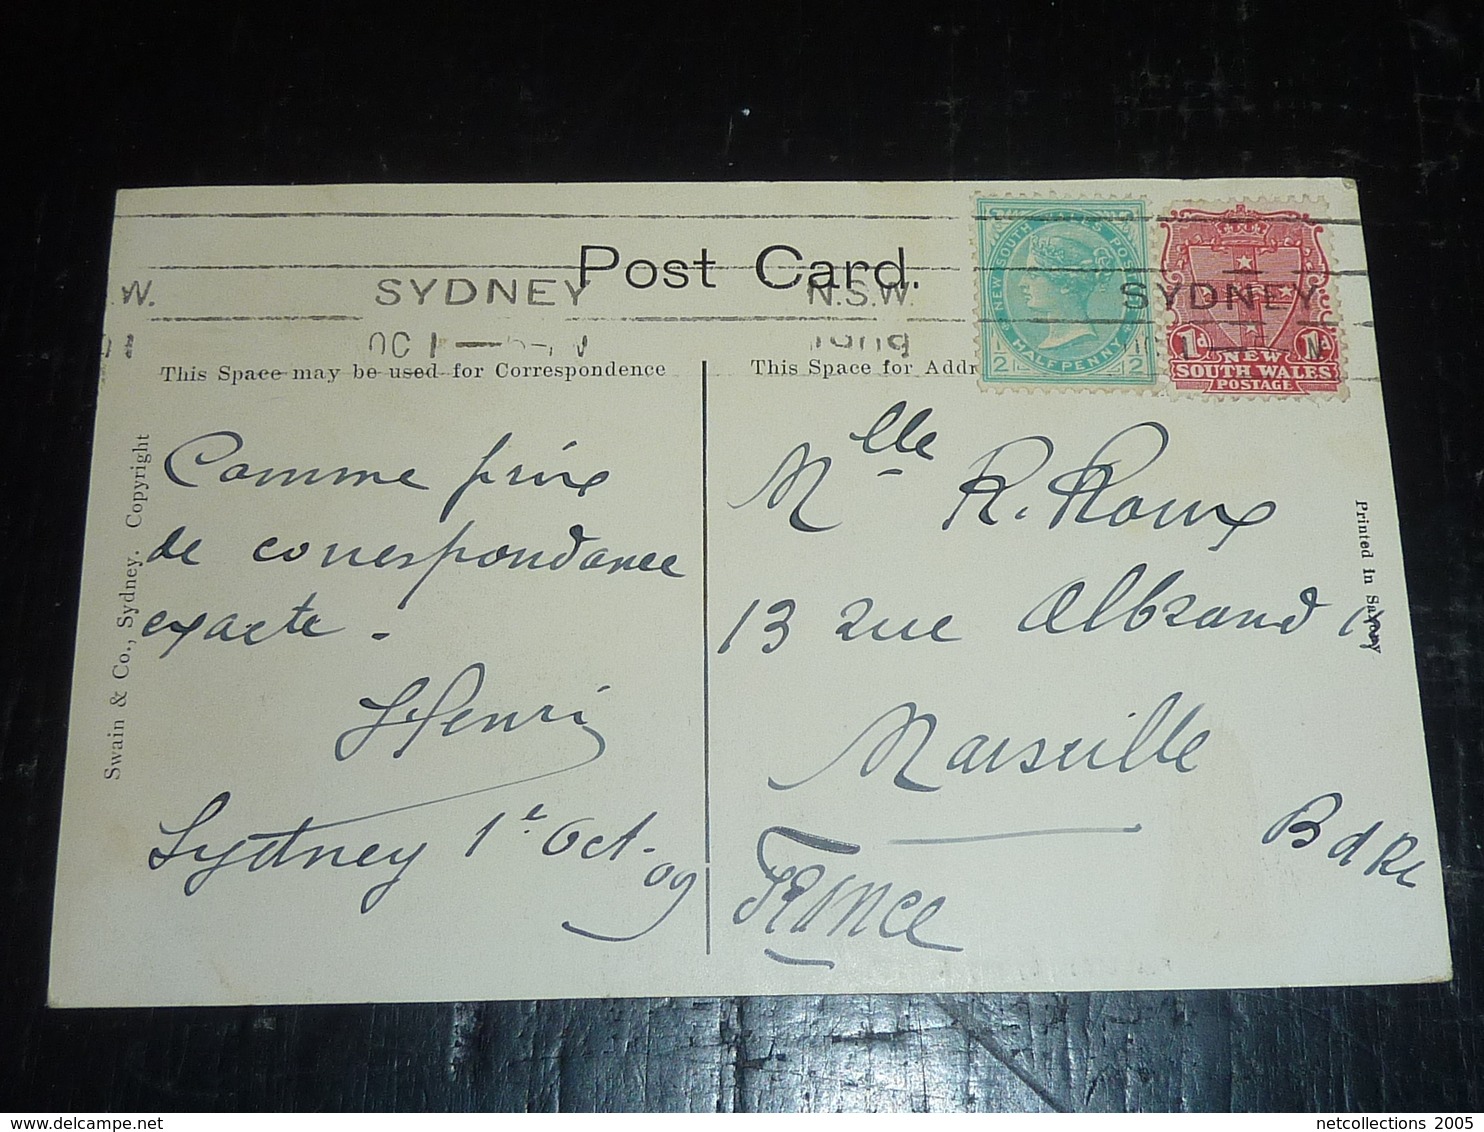 Post Card.
W. SYDNEY N.S.W. SYDNEY
OC 1 1909
NEW SOUTH WALES POSTAGE
HALFPENNY
1/2 1/2
1d 1d
NEW
SOUTH WALES
POSTAGE
This Space may be used for Correspondence
This Space for Addr
Comme prix
de correspondance
exacte.
Henri
Sydney 1er Oct. 09
Mlle R. Roux
13 rue Albrand
Marseille
France
B d R
Swain & Co., Sydney. Copyright
Printed in Saxony
netcollections 2005